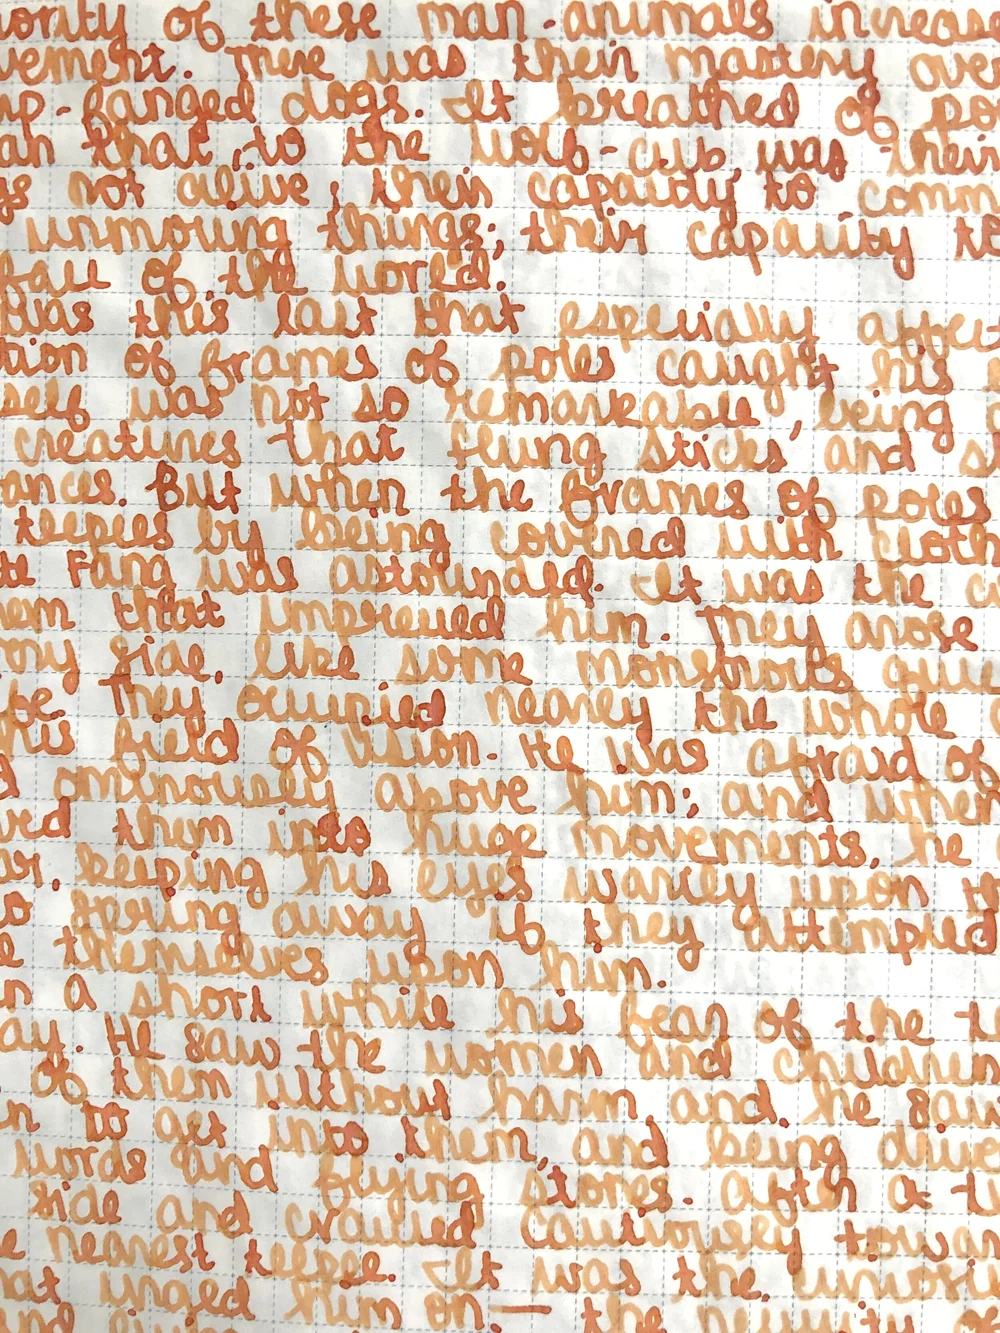 ority of these man-animals increase
vement. There was their mastery over
rp-fanged dogs. It breathed of po
an that, to the wolf-cub, was their
gs not alive; their capacity to comm
unmoving things; their capacity to
face of the world.
was this last that especially affec
tion of frames of poles caught his
self was not so remarkable, being
creatures that flung sticks and s
ances. But when the frames of poles
teepees by being covered with cloth
te Fang was astounded. It was the c
em that impressed him. They arose
ery side, like some monstrous qui
fe. They occupied nearly the whole
his field of vision. He was afraid of
d ominously above him; and when
ved them into huge movements, he
ar, keeping his eyes warily upon th
to spring away if they attempted
e themselves upon him.
in a short while his fear of the t
ay. He saw the women and children
of them without harm and he saw
n to get into them, and being drive
words and flying stones. After a ti
side and crawled cautiously towar
e nearest teepee. It was the curiosi
hat urged him on — the necessity of